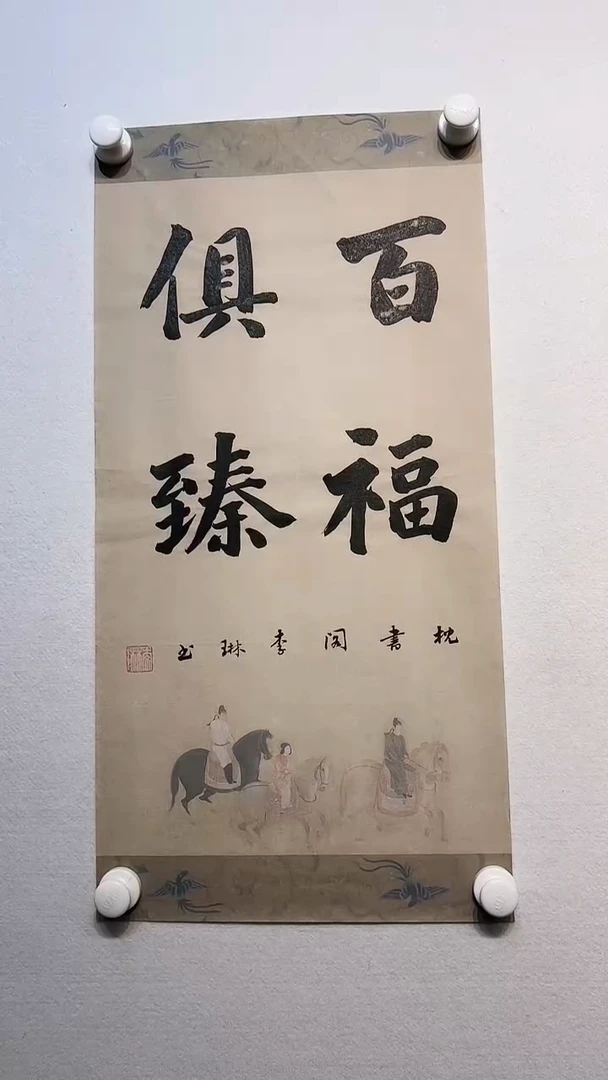 百福
俱臻
枕書阁李琳书